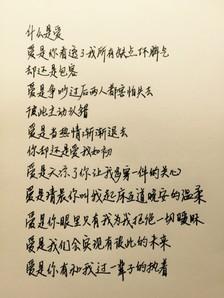 什么是爱
爱是你看透了我所有缺点坏脾气
却还是包容
爱是争吵过后两人都害怕失去
彼此主动认错
爱是当热情渐渐退去
你却还是爱我如初
爱是天凉了你让我多穿一件的关心
爱是清晨你叫我起床互道晚安的温柔
爱是你眼里只有我为我拒绝一切暧昧
爱是我们会实现有彼此的未来
爱是你有和我过一辈子的执着